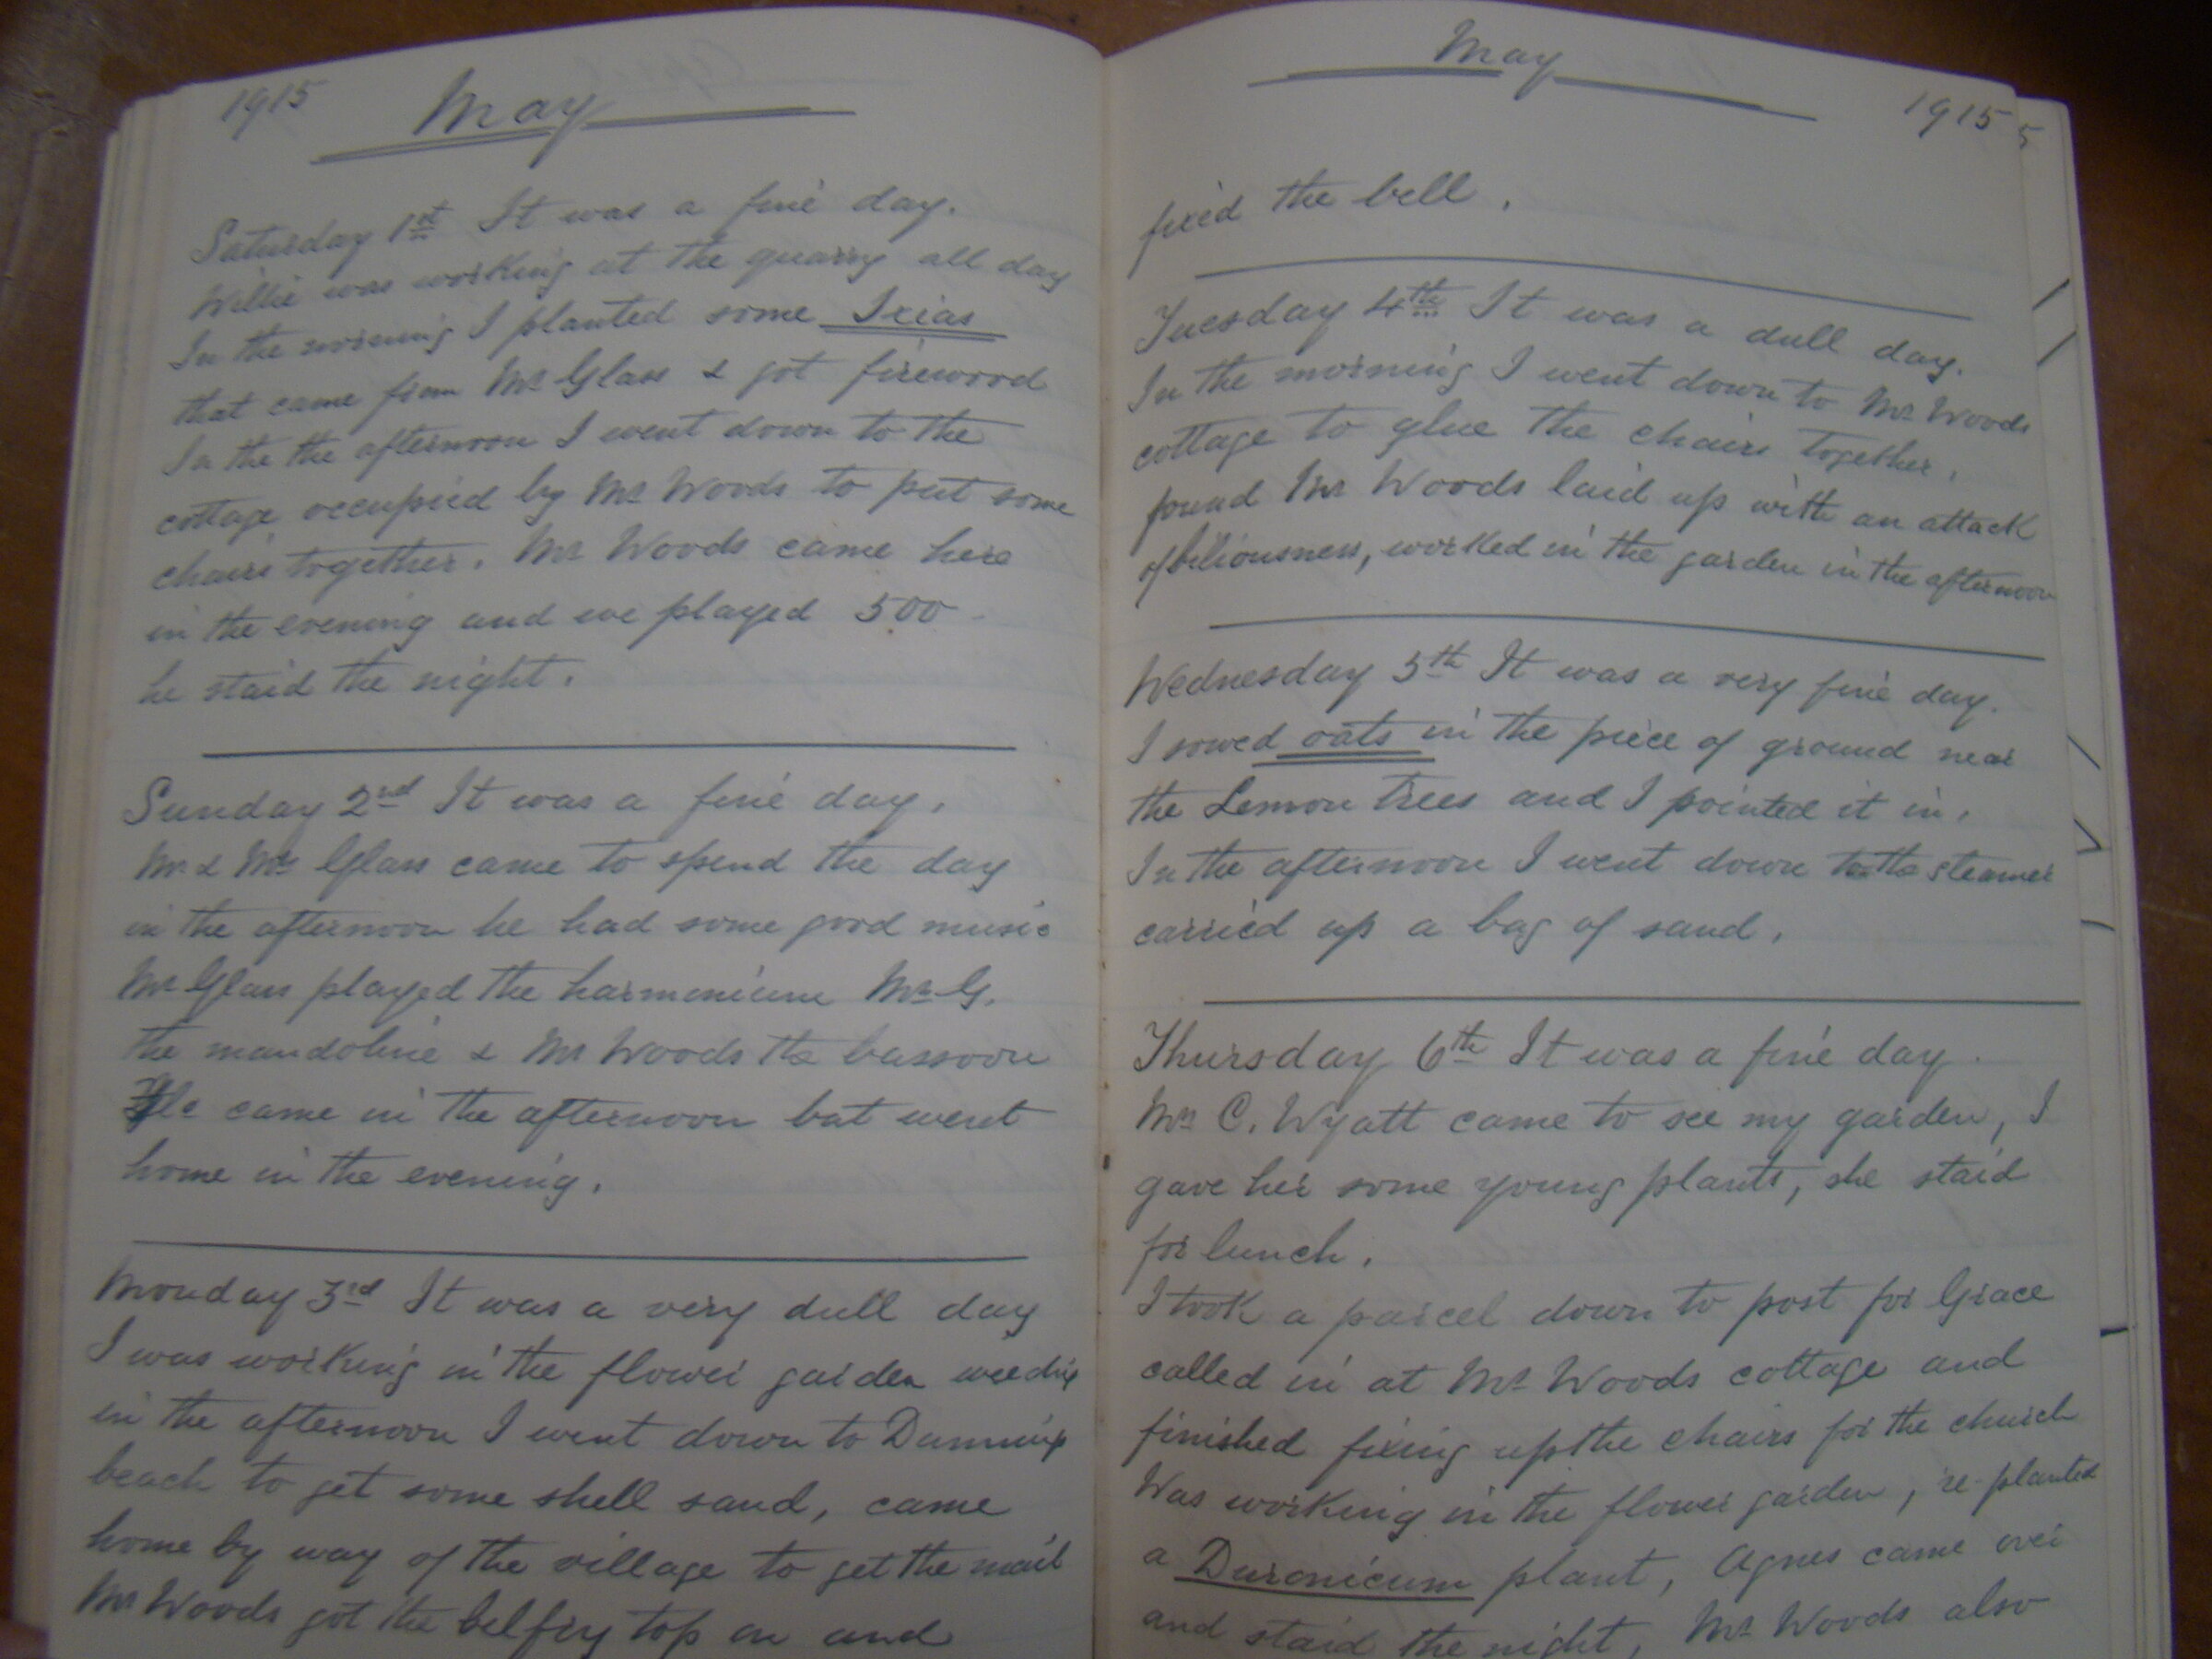 1915
May
Saturday 1st It was a fine day.
Willie was working at the quarry all day
In the morning I planted some Ixias
that came from Mr Glass & got firewood
In the the afternoon I went down to the
cottage occupied by Mr Woods to put some
chairs together. Mr Woods came here
in the evening and we played 500
he staid the night.
Sunday 2nd It was a fine day.
Mr & Mrs Glass came to spend the day
in the afternoon he had some good music
Mr Glass played the harmonium Mrs G.
the mandoline & Mr Woods the bassoon
He came in the afternoon but went
home in the evening.
Monday 3rd It was a very dull day
I was working in the flower garden weeding
in the afternoon I went down to
beach to get some shell sand, came
home by way of the village to get the mail
Mr Woods got the belfry top on and
May
1915
5
fixed the bell.
Tuesday 4th It was a dull day.
In the morning I went down to Mr Woods
cottage to glue the chairs together,
found Mr Woods laid up with an attack
of biliousness, worked in the garden in the afternoon
Wednesday 5th It was a very fine day.
I sowed oats in the piece of ground near
the Lemon trees and I pointed it in.
In the afternoon I went down to the steamer
carried up a bag of sand.
Thursday 6th It was a fine day.
Mrs C. Wyatt came to see my garden, I
gave her some young plants, she staid
for lunch.
I took a parcel down to post for Grace
called in at Mr Woods cottage and
finished fixing up the chairs for the church
Was working in the flower garden, re-planted
a Duronicum plant, Agnes came over
and staid the night, Mr Woods also